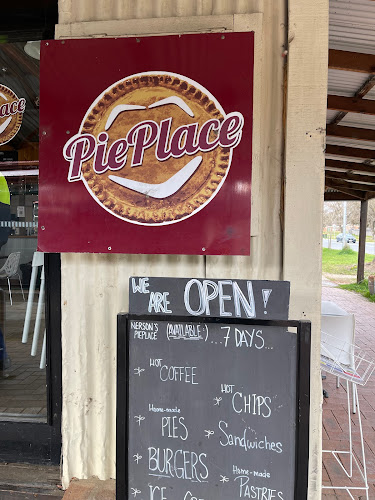 PiePlace
ace
WE ARE OPEN!
NERSON'S
PIEPLACE
(AVAILABLE:)...7 DAYS...
HOT
COFFEE
HOT
CHIPS
Home-made
PIES
Sandwiches
BURGERS
Home-made
PASTRIES
ICE